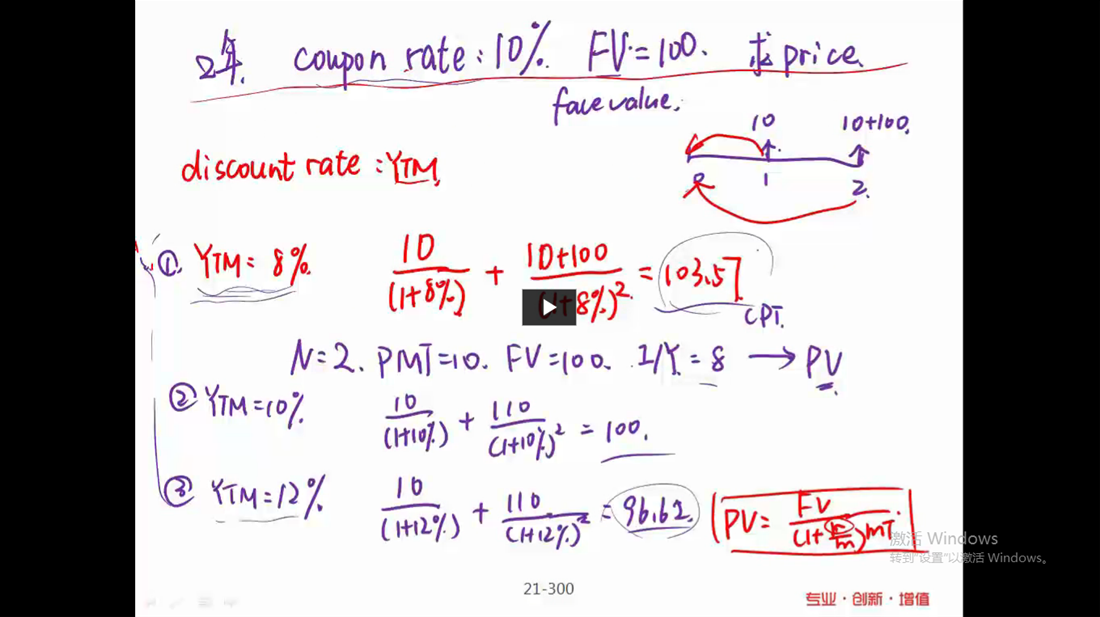 2年. coupon rate: 10%. FV=100. 求price.
face value.
10 10+100.
discount rate: YTM.
0 1 2.
① YTM= 8%. 10/(1+8%) + 10+100/(1+8%)². = 103.57
CPT.
N=2. PMT=10. FV=100. I/Y=8 → PV
② YTM=10%. 10/(1+10%) + 110/(1+10%)² = 100.
③ YTM=12%. 10/(1+12%) + 110/(1+12%)² = 96.62.
PV= FV/(1+r/m)mT.
激活 Windows
转到"设置"以激活 Windows。
21-300
专业·创新·增值